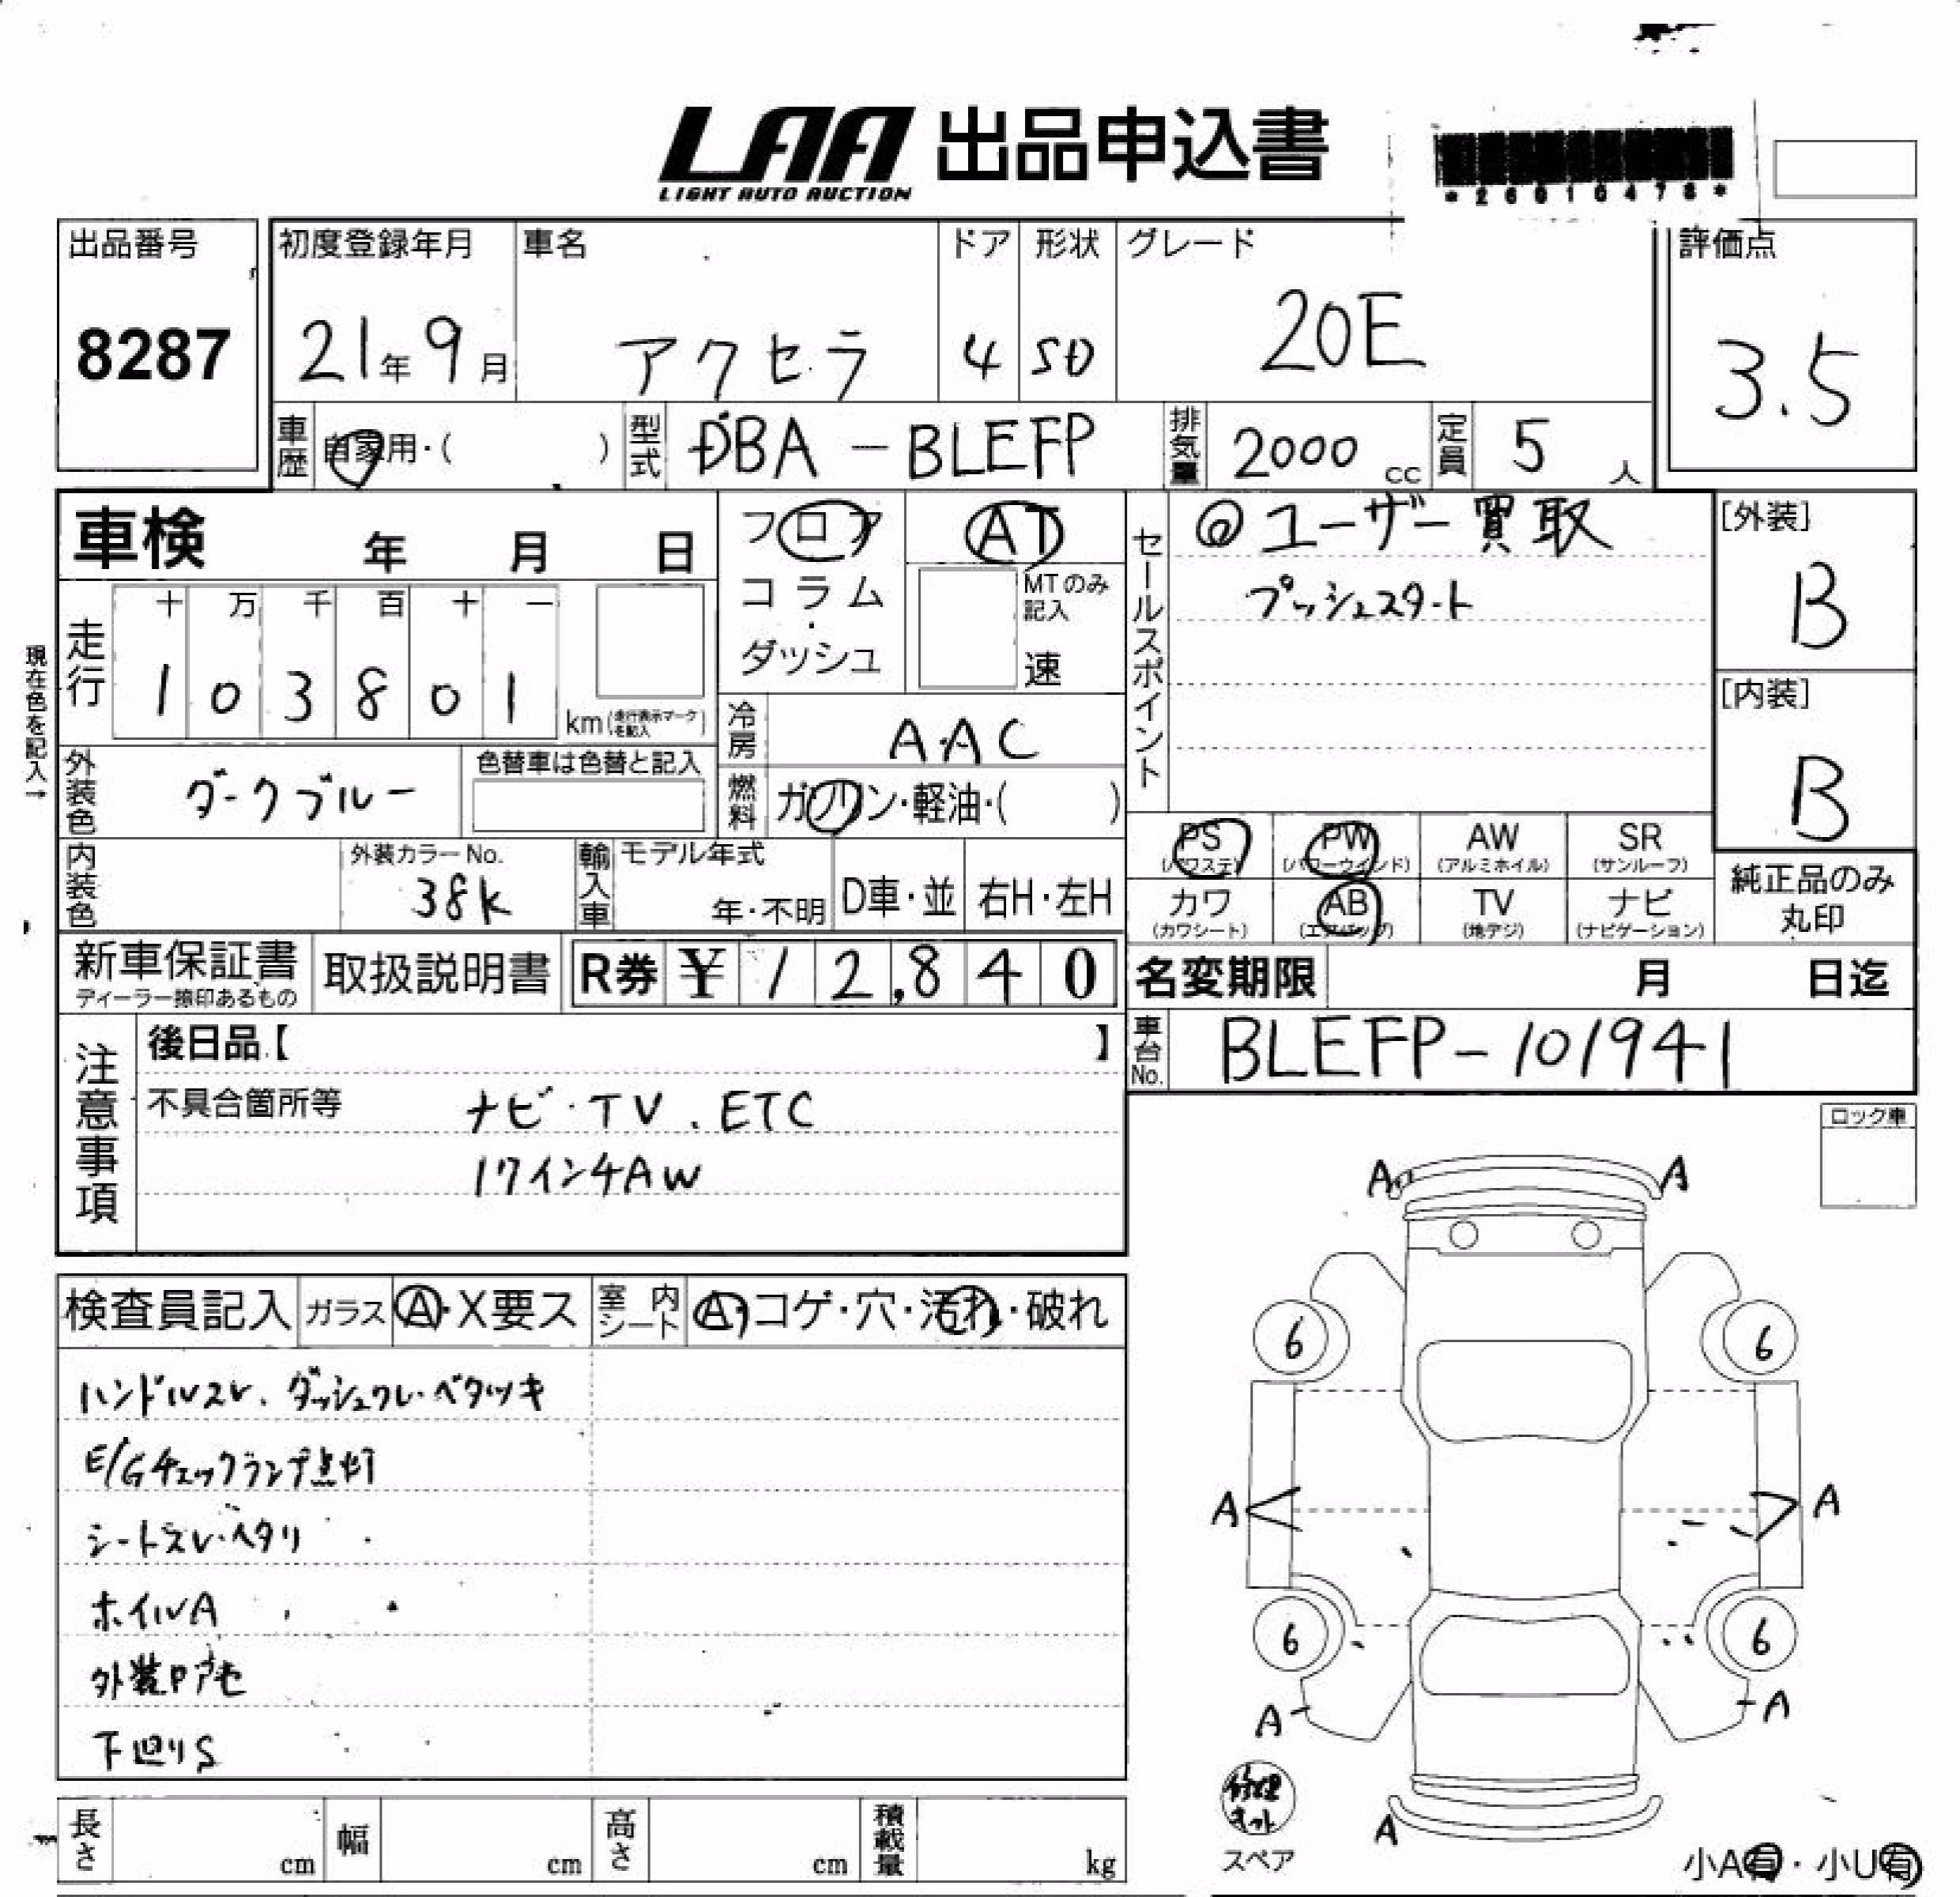 LAA 出品申込書
LIGHT AUTO AUCTION
*26010478*
出品番号
8287
初度登録年月
21年9月
車名
アクセラ
ドア
4
形状
SD
グレード
20E
評価点
3.5
車歴
自家用・( )
型式
DBA-BLEFP
排気量
2000cc
定員
5人
車検 年 月 日
フロア
コラム
ダッシュ
AT
MTのみ記入
速
セールスポイント
@ユーザー買取
プッシュスタート
[外装]
B
[内装]
B
現在色を記入→
走行
十 万 千 百 十 一
1 0 3 8 0 1
km(走行表示マークを記入)
冷房
AAC
外装色
ダークブルー
色替車は色替と記入
燃料
ガソリン・軽油・( )
内装色
外装カラーNo.
38K
輸入車
モデル年式
年・不明
D車・並
右H・左H
PS
(パワステ)
PW
(パワーウインド)
AW
(アルミホイル)
SR
(サンルーフ)
カワ
(カワシート)
AB
(エアバッグ)
TV
(地デジ)
ナビ
(ナビゲーション)
純正品のみ
丸印
新車保証書
ディーラー捺印あるもの
取扱説明書
R券 ¥12,840
名変期限 月 日迄
車台No.
BLEFP-101941
注意事項
後日品【 】
不具合箇所等
ナビ・TV.ETC
17インチAW
ロック車
検査員記入
ガラス
A・X要ス
室内シート
A・コゲ・穴・汚れ・破れ
ハンドルスレ.ダッシュワレ・ベタツキ
E/Gチェックランプ点灯
シートスレ・ヘタリ
ホイルA
下廻りS
A A
6 6
A A
6 6
A A
A
修理キット
スペア
小A有・小U有
長さ cm
幅 cm
高さ cm
積載量 kg